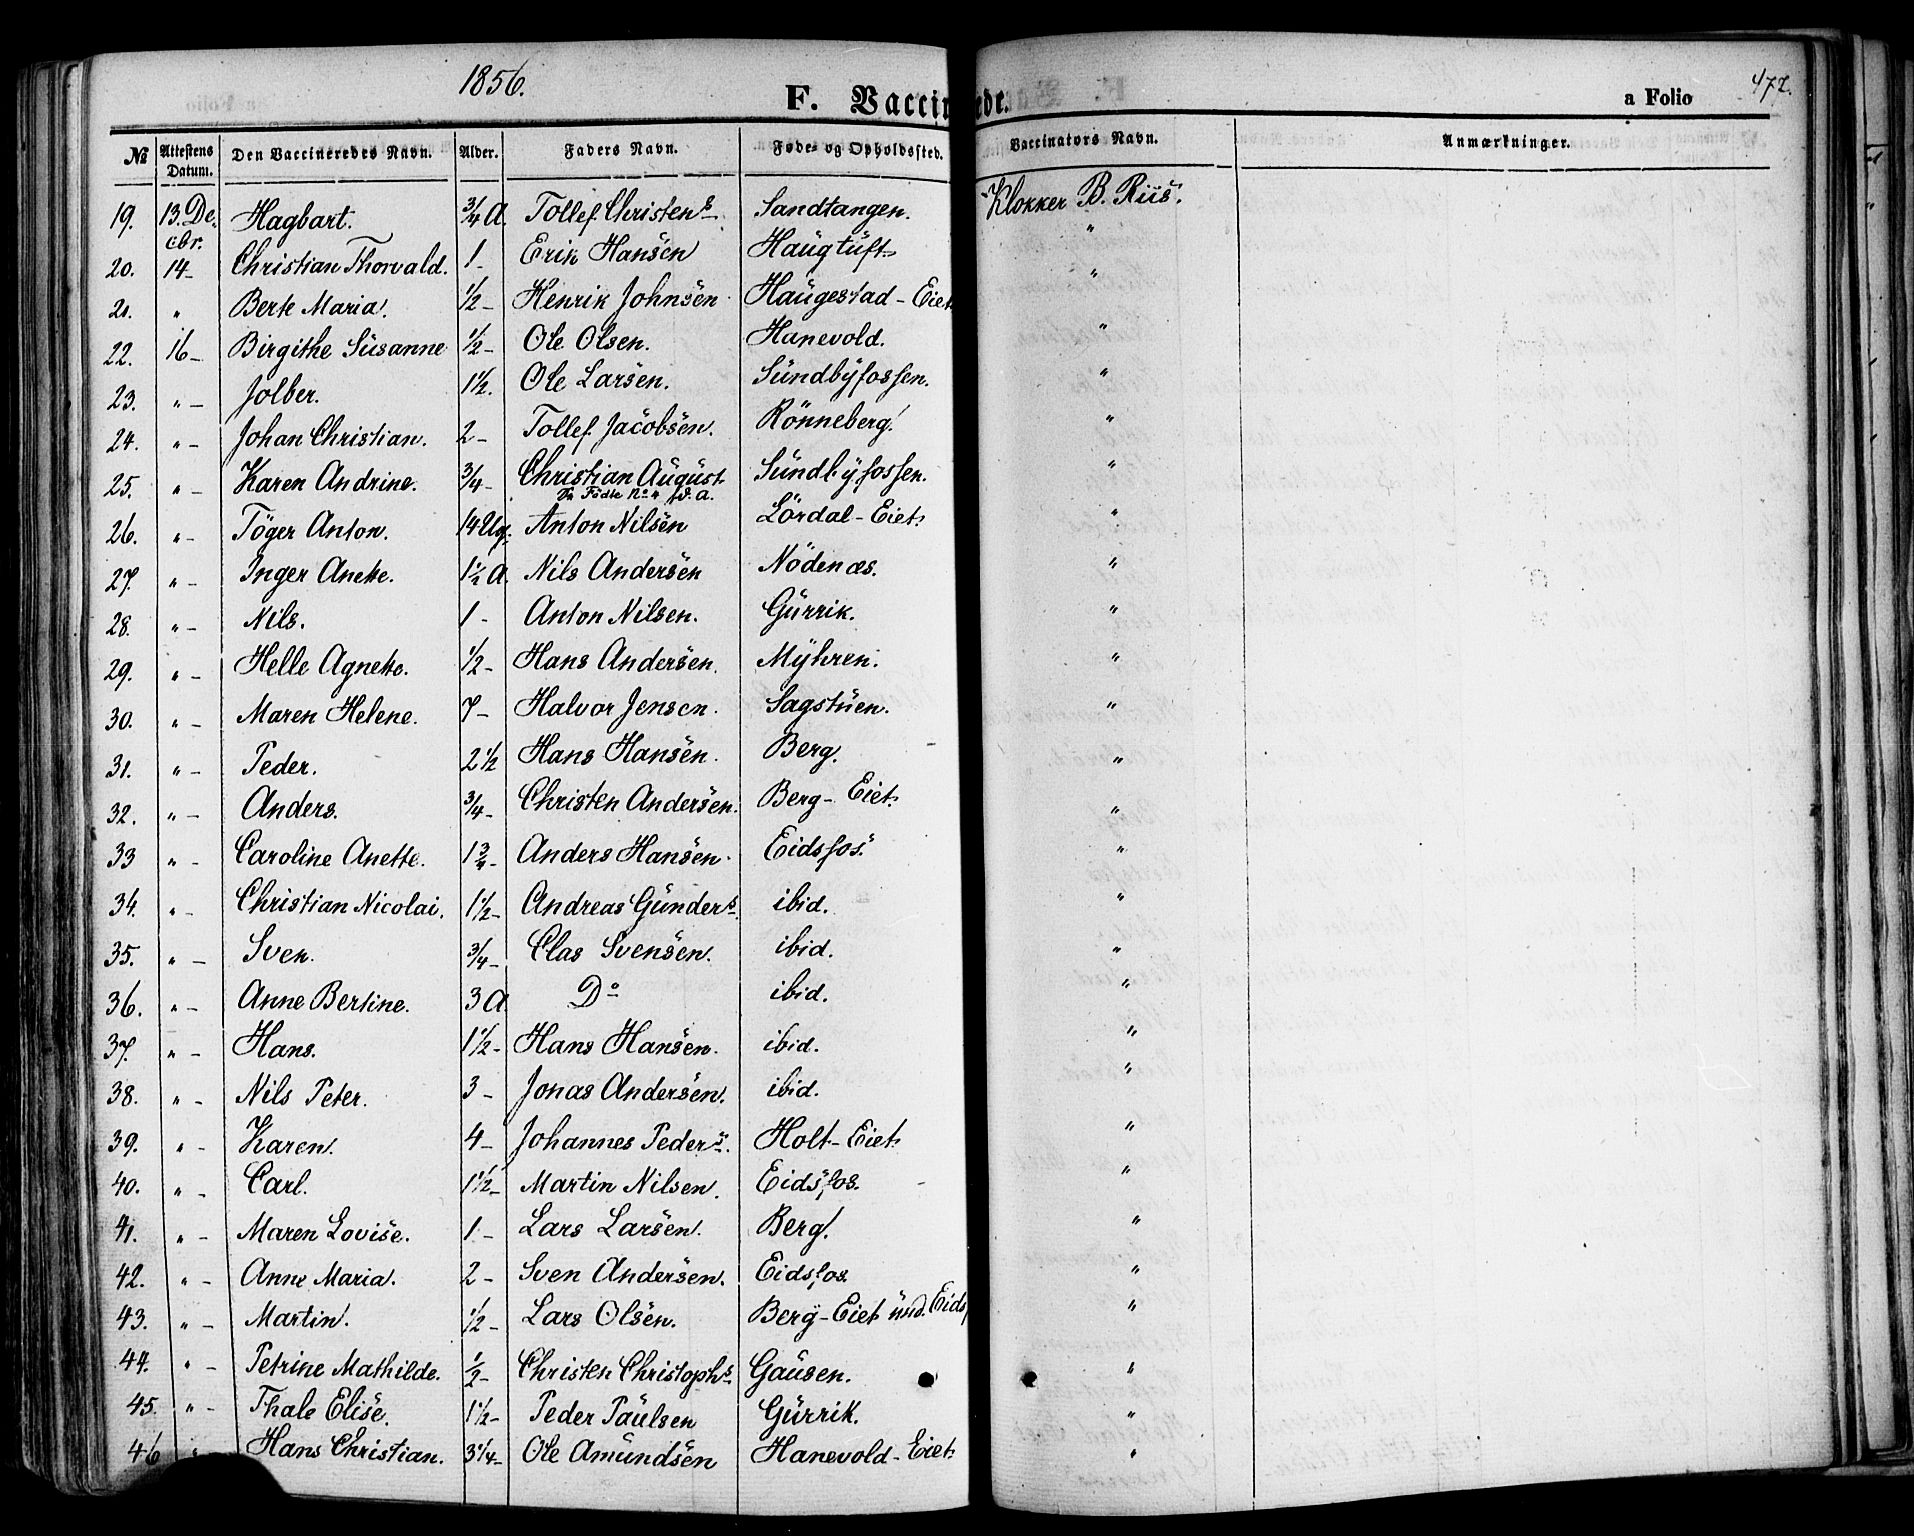 1856.
F. Vaccinerede.
a Folio 477.
№ Attestens Datum. Den Vaccineredes Navn. Alder. Faders Navn. Føde- og Opholdssted. Vaccinators Navn. Anmærkninger.
19. 13. Decbr. Hagbart. 3/4 A. Tollef Christens Sandtangen. Klokker B. Riis.
20. 14 - Christian Thorvald. 1 - Erik Hansen Haugtuft "
21. " Berte Maria. 1/2 - Henrik Johnsen Haugestad - Eiet "
22. 16 - Birgithe Susanne 1/2 - Ole Olsen. Hanevold. "
23. " - Jolber. 1 1/2. Ole Larsen. Sundbyfossen. "
24. " - Johan Christian. 2 - Tollef Jacobsen. Rönneberg. "
25. " - Karen Andrine. 3/4 - Christian August Sundbyfossen. "
Födte No 4 f. a.
26. " - Töger Anton. 14 Ug. Anton Nilsen Lördal - Eiet. "
27. " - Inger Anette. 1 1/2 A. Nils Andersen Nödenæs. "
28. " - Nils. 1 - Anton Nilsen. Gurrik. "
29. " - Helle Agnette. 1/2 - Hans Andersen. Myhren. "
30. " - Maren Helene. 7 - Halvor Jensen. Sagstuen. "
31. " - Peder. 2 1/2 Hans Hansen. Berg. "
32. " - Anders. 3/4 - Christen Andersen. Berg - Eiet. "
33 " - Caroline Anette. 1 3/4 - Anders Hansen. Eidsfos. "
34. " - Christian Nicolai. 1 1/2 - Andreas Gunders. ibid. "
35. " - Sven. 3/4 - Clas Svensen. ibid. "
36. " - Anne Bertine. 3 A. Do ibid. "
37. " - Hans. 1 1/2 - Hans Hansen. ibid. "
38. " - Nils Peter. 3 - Jonas Andersen. ibid. "
39. " - Karen. 4 - Johannes Peders. Holt - Eiet. "
40. " - Carl. 1 1/2 - Martin Nilsen. Eidsfos. "
41. " - Maren Lovise. 1 - Lars Larsen. Berg. "
42. " - Anne Maria. 2 - Sven Andersen. Eidsfos. "
43. " - Martin. 1/2 - Lars Olsen. Berg - Eiet und. Eidsf "
44. " - Petrine Mathilde. 1/2 - Christen Christophs Gausen. "
45. " - Thale Elise. 1 1/2 - Peder Paulsen Gurrik. "
46 " Hans Christian. 3 1/4 - Ole Amundsen Hanevold - Eiet "